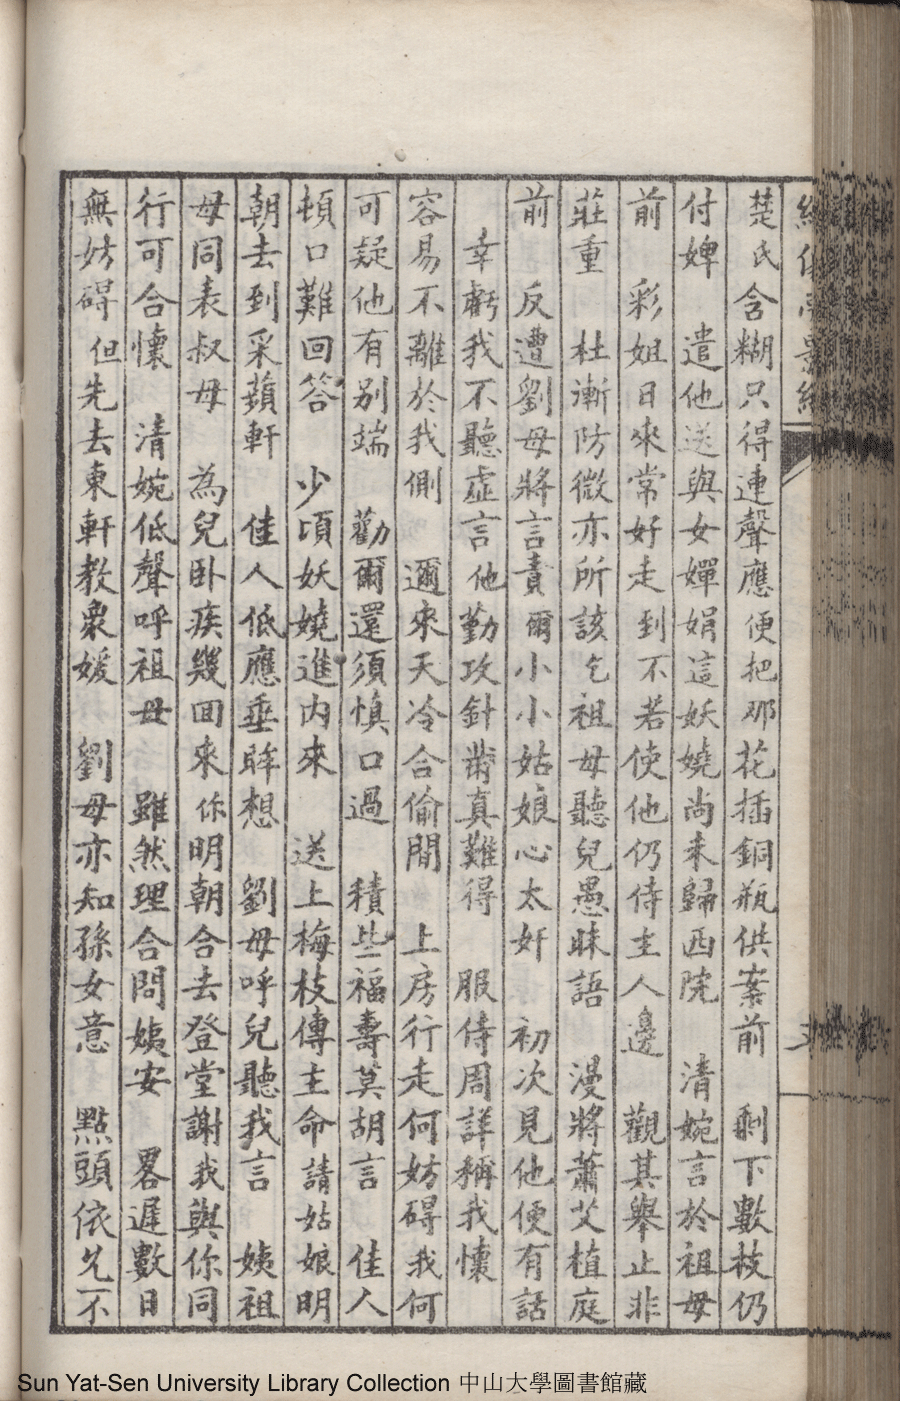 楚氏含糊只得連聲應 便把那花插銅瓶供案前 剩下數枝仍
付婢 遣他送與女嬋娟 這妖嬈尚未歸西院 清婉言於祖母
前 彩姐日來常好走到 不若使他仍侍主人邊 觀其舉止非
莊重 杜漸防微亦所該 乞祖母聽兒愚昧語 漫將蕭艾植庭
前 反遭劉母將言責 爾小小姑娘心太奸 初次見他便有話
幸虧我不聽虛言 他勤攻針黹真難得 服侍周詳稱我懷
容易不離於我側 邇來天冷合偷閒 上房行走何妨碍 我何
可疑他有別端 勸爾還須慎口過 積些福壽莫胡言 佳人
頓口難回答 少頃妖嬈進內來 送上梅枝傳主命 請姑娘明
朝去到采蘋軒 佳人低應垂眸想 劉母呼兒聽我言 姨祖
母同表叔母 為兒卧疾幾回來 你明朝合去登堂謝 我與你同
行可合懷 清婉低聲呼祖母 雖然理合問姨安 畧遲數日
無妨碍 但先去東軒教衆媛 劉母亦知孫女意 點頭依允不
Sun Yat-Sen University Library Collection 中山大學圖書館藏